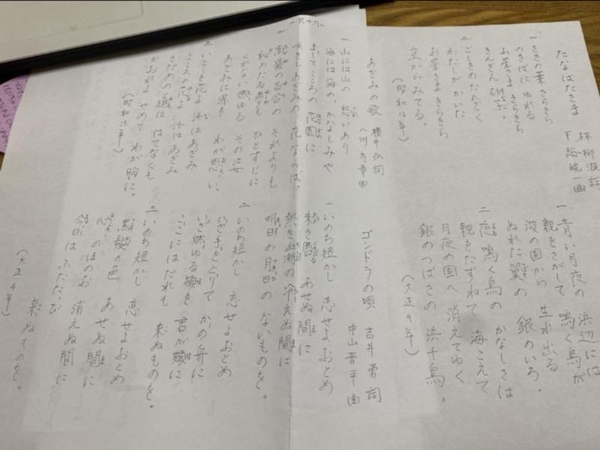 たなばたさま
林柳波 詞
下総皖一 曲
一 ささの葉 さらさら
のきばに ゆれる
お星さま きらきら
きんぎん 砂子
二 ごしきの たんざく
わたしが かいた
お星さま きらきら
空からみてる。
(昭和16年)
あざみの歌
横井弘 詞
八洲秀章 曲
一 山には山の 愁いあり
海には海の かなしみや
ましてこころの 花園に
咲きしあざみの 花ならば。
二 高嶺の百合の それよりも
秘めたる夢を ひとすじに
くれない燃ゆる その姿
あざみに深き わが想い。
三 いとしき花よ 汝はあざみ
こころの花よ 汝はあざみ
さだめの径は はてなくも
かおれよせめて わが胸に。
一 青い月夜の 浜辺には
親をさがして 鳴く鳥が
波の国から 生れ出る
ぬれた翼の 銀のいろ。
二 夜鳴く鳥の かなしさは
親をたずねて 海こえて
月夜の国へ 消えてゆく
銀のつばさの 浜千鳥。
(大正9年)
ゴンドラの唄
吉井勇 詞
中山晋平 曲
一 いのち短かし 恋せよおとめ
熱き血潮の 冷えぬ間に
明日の月日の ないものを。
二 いのち短かし 恋せよおとめ
いざ手をとりて かの舟に
ここにはだれも 来ぬものを。
三 いのち短かし 恋せよおとめ
黒髪の色 あせぬ間に
心のほのお 消えぬ間に
今日はふたたび 来ぬものを。
(大正4年)